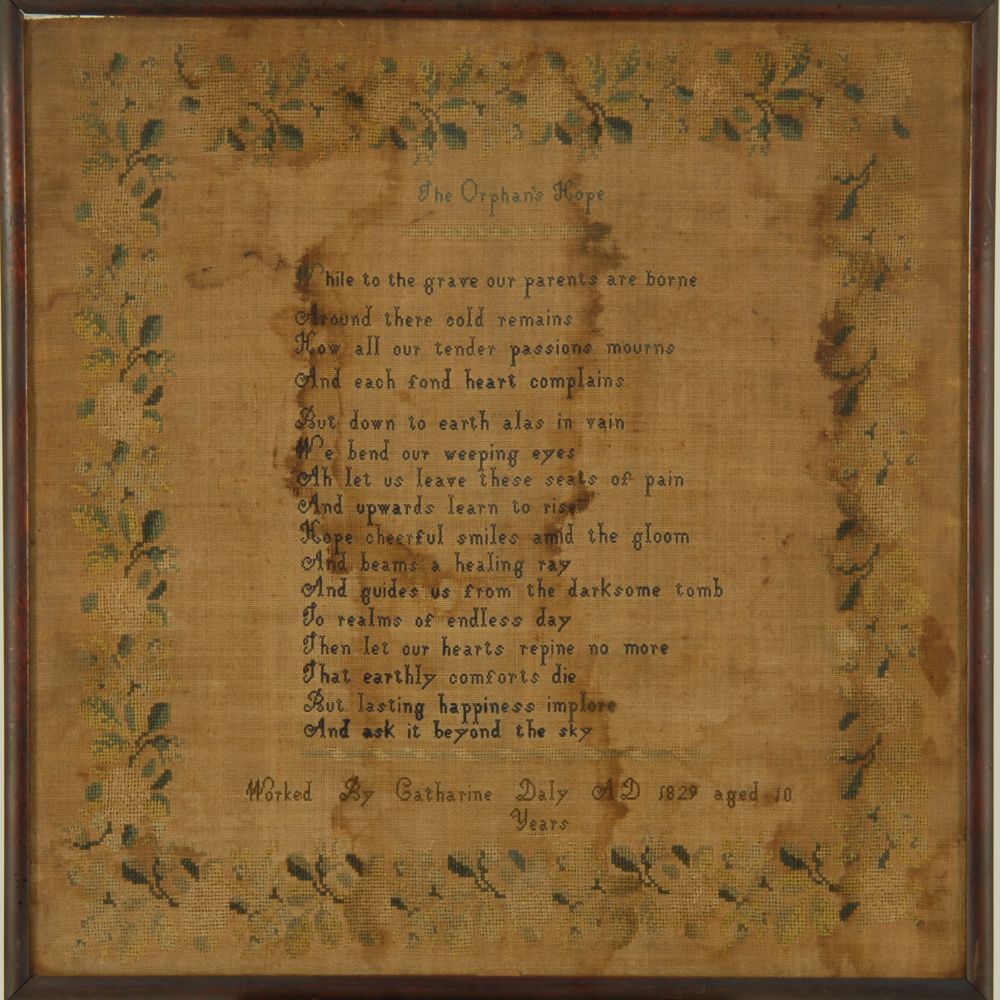 The Orphan's Hope
While to the grave our parents are borne
Around there cold remains
How all our tender passions mourns
And each fond heart complains
But down to earth alas in vain
We bend our weeping eyes
Ah let us leave these seats of pain
And upwards learn to rise
Hope cheerful smiles amid the gloom
And beams a healing ray
And guides us from the darksome tomb
To realms of endless day
Then let our hearts repine no more
That earthly comforts die
But lasting happiness implore
And ask it beyond the sky
Worked By Catharine Daly AD 1829 aged 10
Years